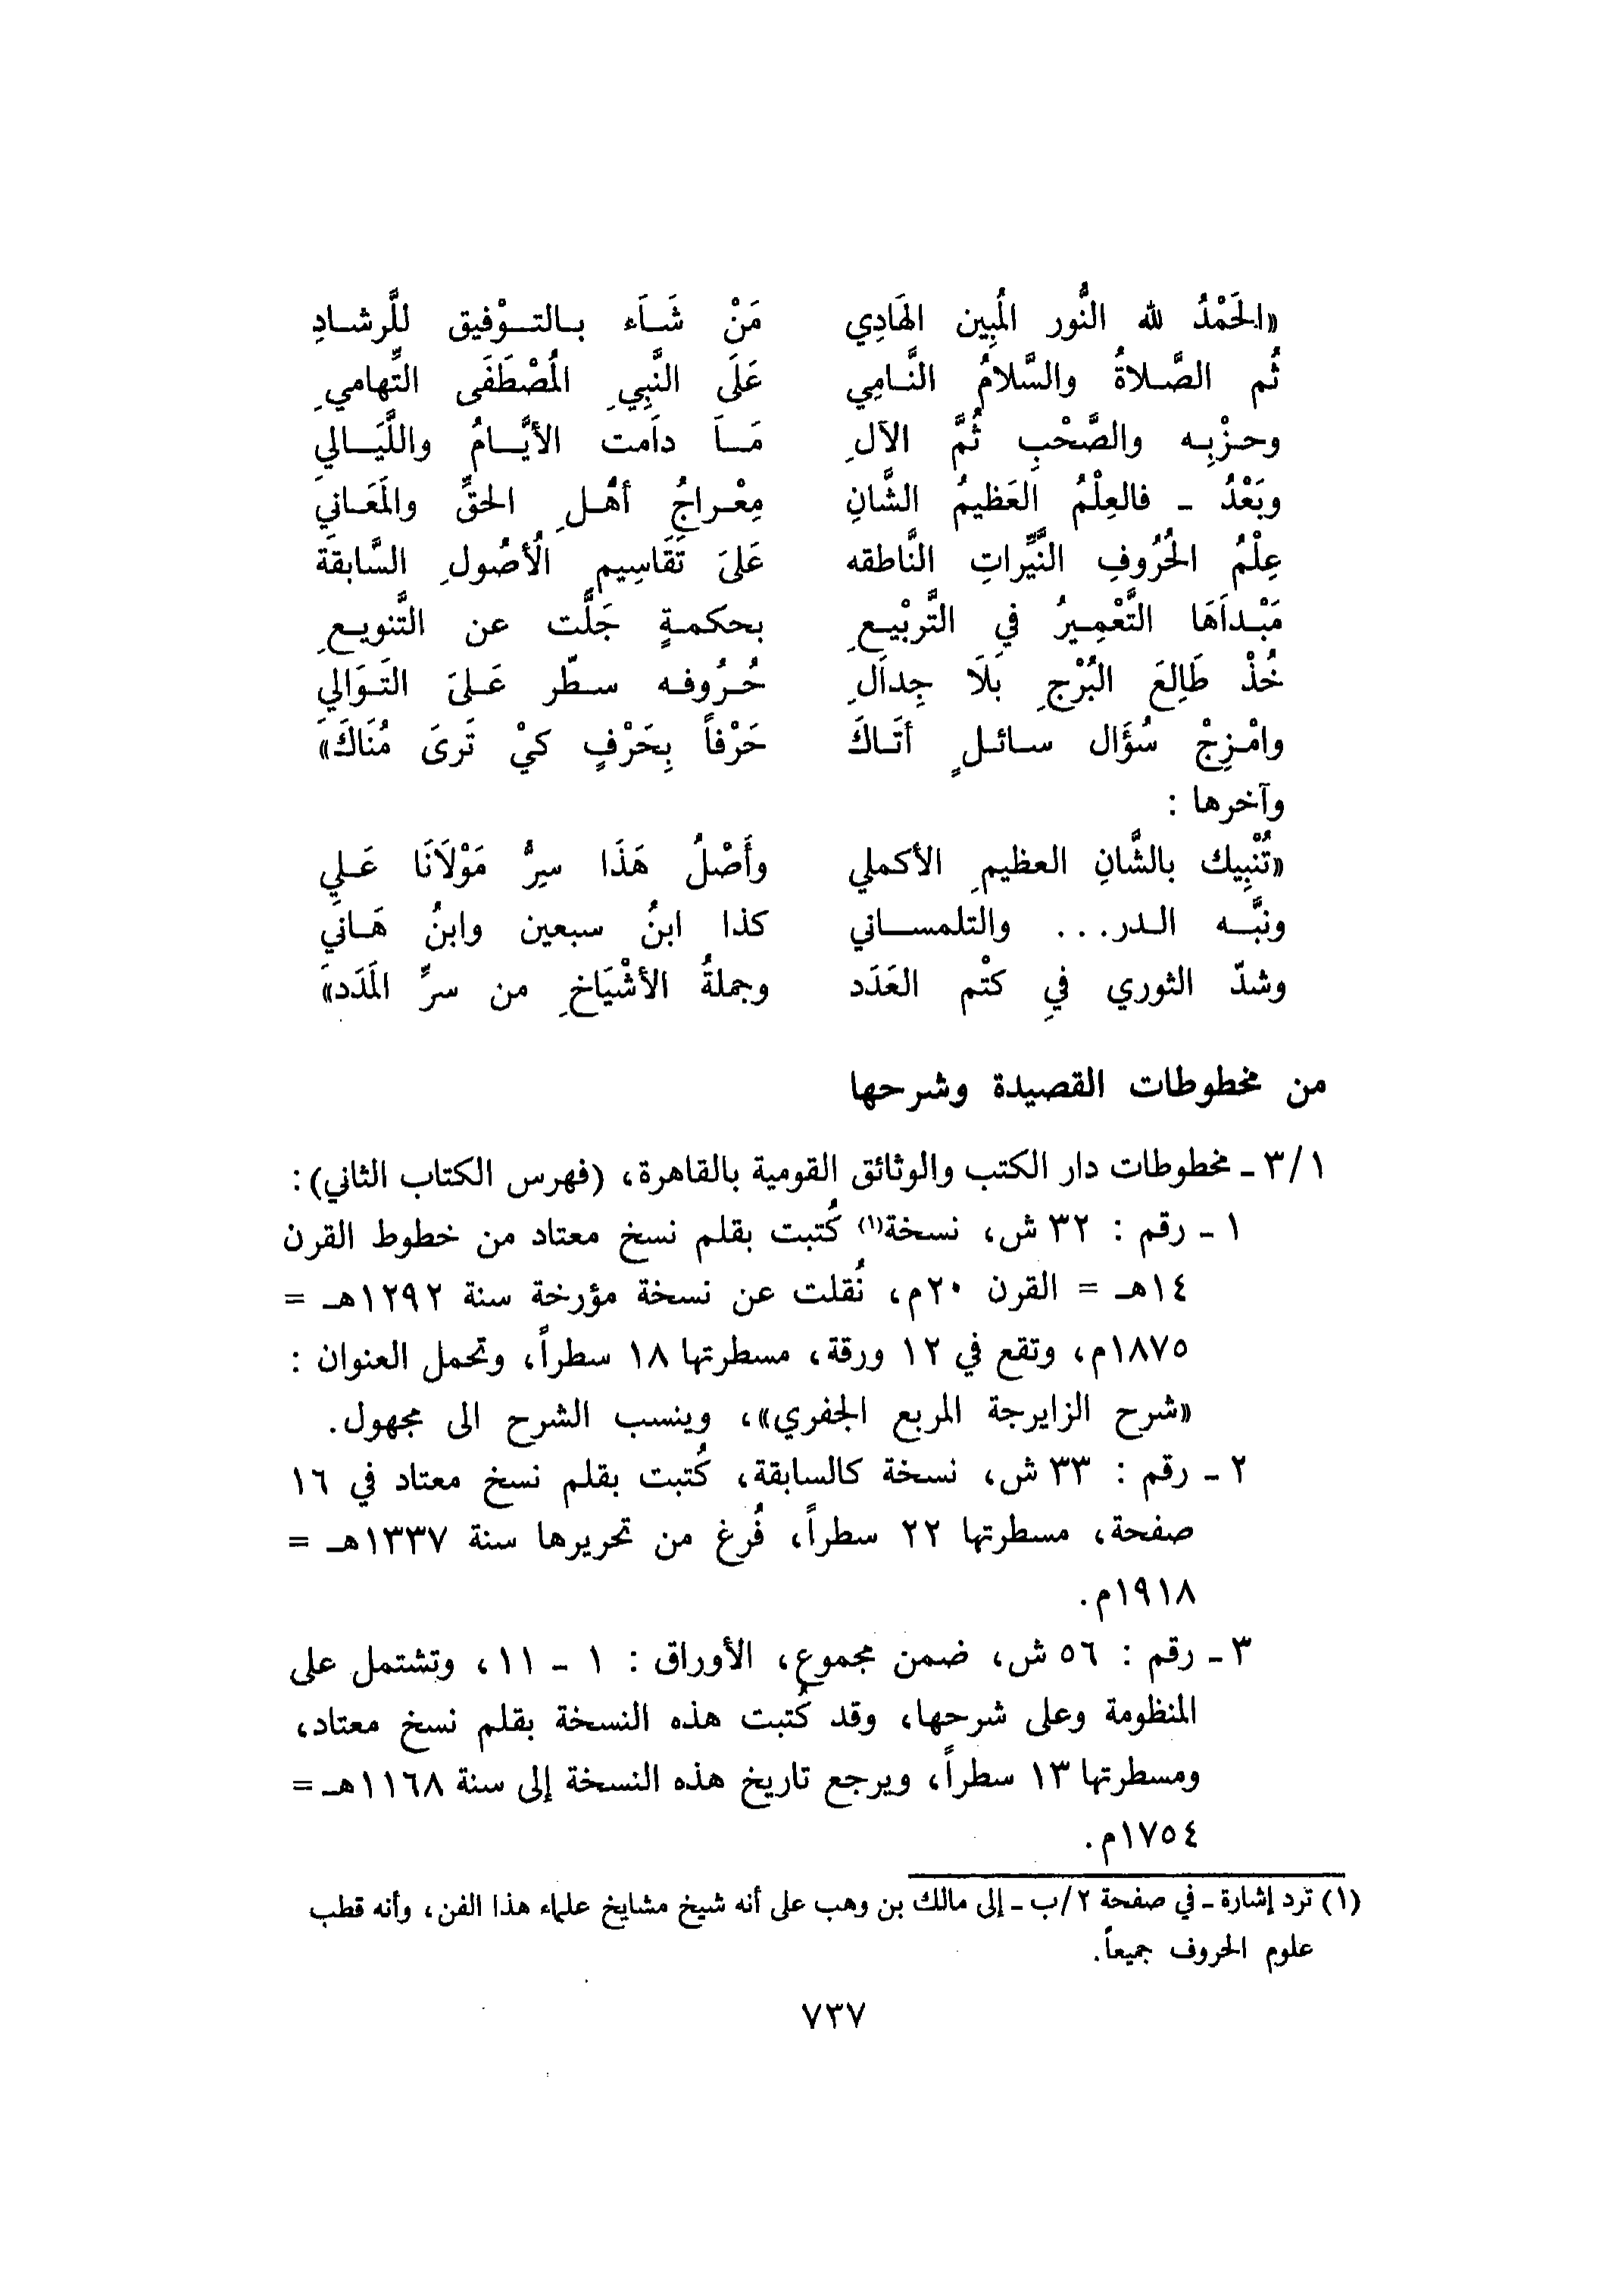 «الحَمْدُ لله النُّور المُبِين الهَادِي مَنْ شَاَء بالتوْفيق للَّرشادِ
ثُم الصَّلاةُ والسَّلامُ النَّامِي عَلَى النَّبِيِ المُصْطَفَى التِّهامي
وحزْبِه والصَّحْبِ ثُمَّ الآلِ مَاَ داَمت الأيَّامُ واللَّيَالي
وبَعْدُ - فالعِلْمُ العَظيمُ الشَّانِ مِعْراجُ أهْلِ الحقِّ والمَعَاني
عِلْمُ الحُرُوفِ النَّيِّراتِ النَّاطقه عَلىَ تَقَاسِيمِ الُأصُولِ السَّابقة
مَبْداَهَا التَّعْمِيرُ في التَّربْيعِ بحكمةٍ جَلَّت عن التَّنويعِ
خُذْ طَاِلعَ البُرْجِ بَلَا جِداَلِ حُرُوفه سطّر عَلىَ التَوَالي
وامْزِجْ سُؤَال سائلٍ أتَاكَ حَرْفاً بِحَرْفٍ كيْ تَرىَ مُنَاكَ»
وآخرها :
«تُنْبِيك بالشَّانِ العظيمِ الأكملي وأَصْلُ هَذَا سِرُّ مَوْلَانَا عَلي
ونبَّه الدر... والتلمساني كذا ابنُ سبعين وابنُ هَاني
وشدّ الثوري في كتْم العَدَد وجملةُ الأشْيَاخِ من سرِّ المَدَد»
من مخطوطات القصيدة وشرحها
٣/١ - مخطوطات دار الكتب والوثائق القومية بالقاهرة، (فهرس الكتاب الثاني):
١ - رقم : ٣٢ ش، نسخة(١) كُتبت بقلم نسخ معتاد من خطوط القرن
١٤هـ = القرن ٢٠م، نُقلت عن نسخة مؤرخة سنة ١٢٩٢هـ =
١٨٧٥م، وتقع في ١٢ ورقة، مسطرتها ١٨ سطراً، وتحمل العنوان :
«شرح الزايرجة المربع الجفري»، وينسب الشرح الى مجهول.
٢ - رقم : ٣٣ ش، نسخة كالسابقة، كُتبت بقلم نسخ معتاد في ١٦
صفحة، مسطرتها ٢٢ سطراً، فُرغ من تحريرها سنة ١٣٣٧هـ =
١٩١٨م.
٣ - رقم : ٥٦ ش، ضمن مجموع، الأوراق : ١ - ١١، وتشتمل على
المنظومة وعلى شرحها، وقد كُتبت هذه النسخة بقلم نسخ معتاد،
ومسطرتها ١٣ سطراً، ويرجع تاريخ هذه النسخة إلى سنة ١١٦٨هـ =
١٧٥٤م.
(١) ترد إشارة - في صفحة ٢/ب - إلى مالك بن وهب على أنه شيخ مشايخ علماء هذا الفن، وأنه قطب
علوم الحروف جميعاً.
٧٣٧